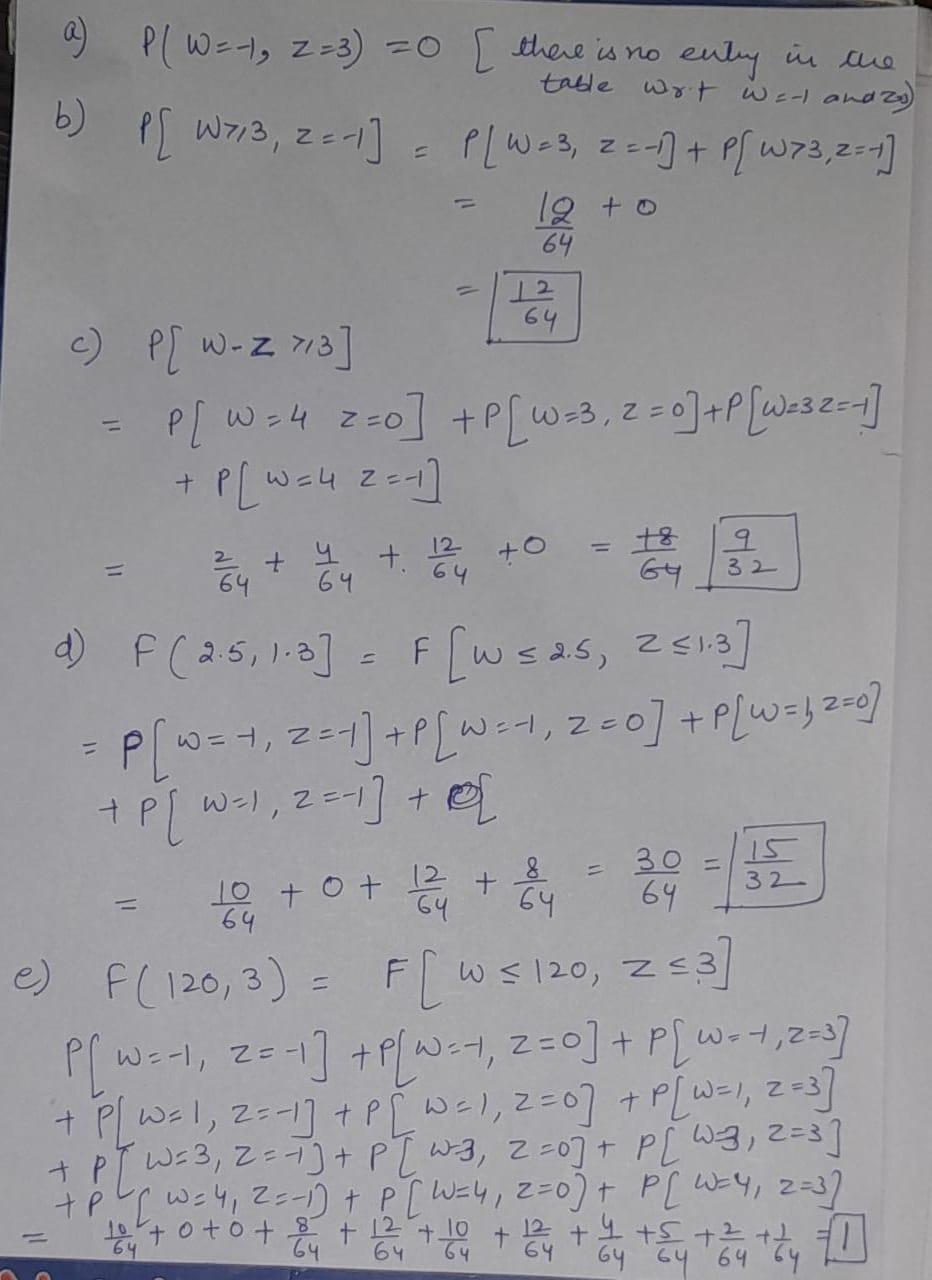 a) P( W=-1, Z=3) = 0 [ there is no entry in the
table w r t w=-1 and z=3)
b) P[ W≥13, Z=-1] = P[W=3, Z=-1] + P[W>3,Z=-1]
= 12/64 + 0
= 12/64
c) P[ W-Z ≥13]
= P[ W=4 Z=0] + P[W=3, Z=0]+P[W=3 Z=-1]
+ P[W=4 Z=-1]
= 2/64 + 4/64 + 12/64 + 0 = 18/64 9/32
d) F(2.5, 1.3] = F[W ≤ 2.5, Z ≤ 1.3]
= P[W=-1, Z=-1] + P[W=-1, Z=0] + P[W=1, Z=0]
+ P[ W=1, Z=-1] +
= 10/64 + 0 + 12/64 + 8/64 = 30/64 = 15/32
e) F(120,3) = F[ W ≤ 120, Z ≤ 3]
P[ W=-1, Z=-1] + P[W=-1, Z=0] + P[W=-1, Z=3]
+ P[W=1, Z=-1] + P[ W=1, Z=0] + P[W=1, Z=3]
+ P[W=3, Z=-1] + P[ W=3, Z=0] + P[ W=3, Z=3]
+ P[ W=4, Z=-1) + P[W=4, Z=0) + P[ W=4, Z=3]
= 10/64 + 0 + 0 + 8/64 + 12/64 + 10/64 + 12/64 + 4/64 + 5/64 + 2/64 + 1/64 = 1